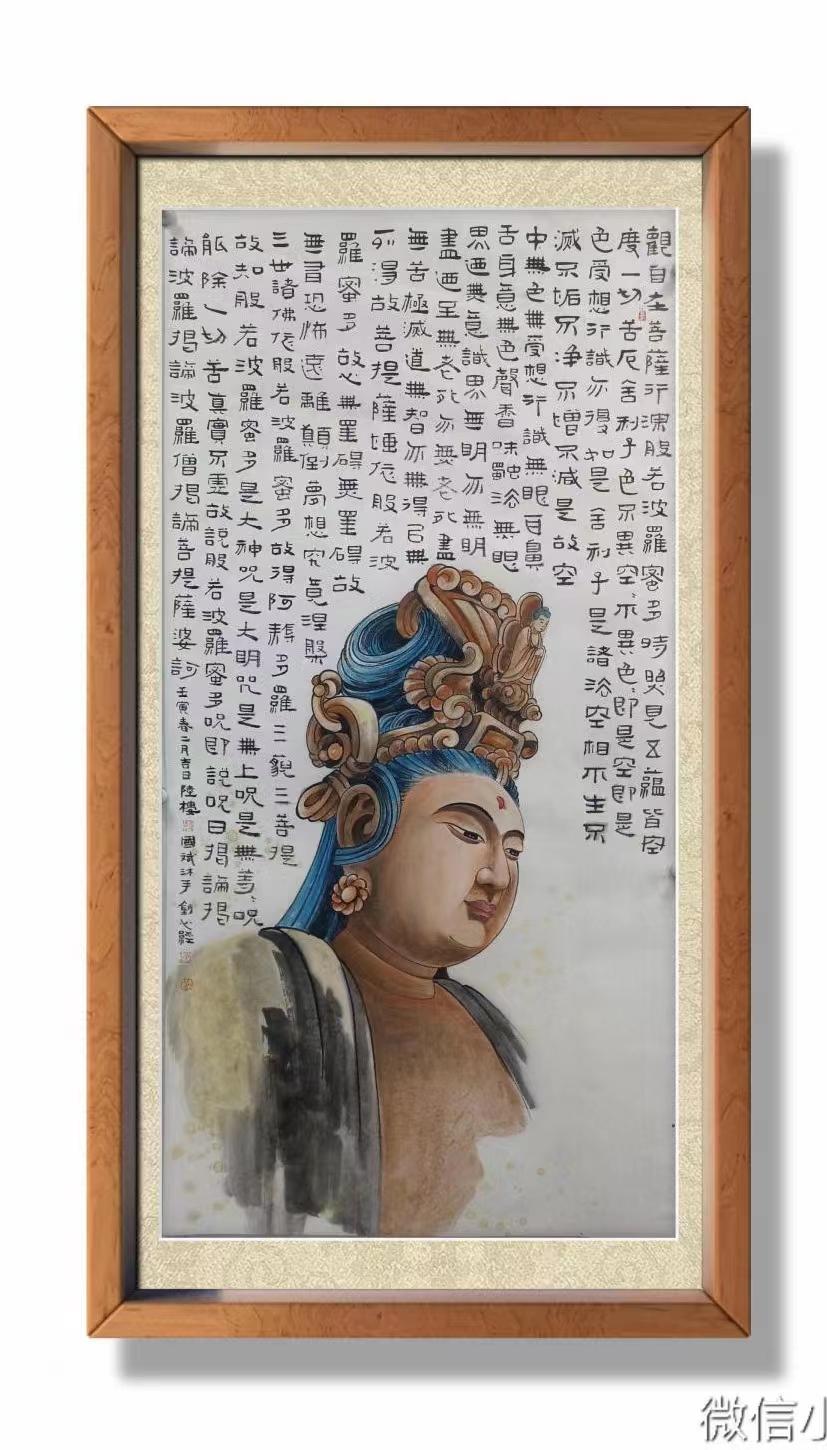 觀自在菩薩行深般若波羅蜜多時照見五蘊皆空
度一切苦厄舍利子色不異空〻不異色〻即是空即是
色受想行識亦復如是舍利子是諸法空相不生不
滅不垢不净不增不減是故空
中無色無受想行識無眼耳鼻
舌身意無色聲香味觸法無眼
界迺無意識界無明亦無明
盡迺至無老死亦無老死盡
無苦極滅道無智亦無得已無
所得故菩提薩埵依般若波
羅蜜多故心無罣碍無罣碍故
無有恐怖遠離顛倒夢想究竟涅槃
三世諸佛依般若波羅蜜多故得阿耨多羅三藐三菩提
故知般若波羅蜜多是大神咒是大明咒是無上咒是無等〻咒
能除一切苦真實不虛故說般若波羅蜜多咒即說咒曰揭諦揭
諦波羅揭諦波羅僧揭諦菩提薩婆訶 壬寅春二月吉日陸樓國斌沐手心經
微信小